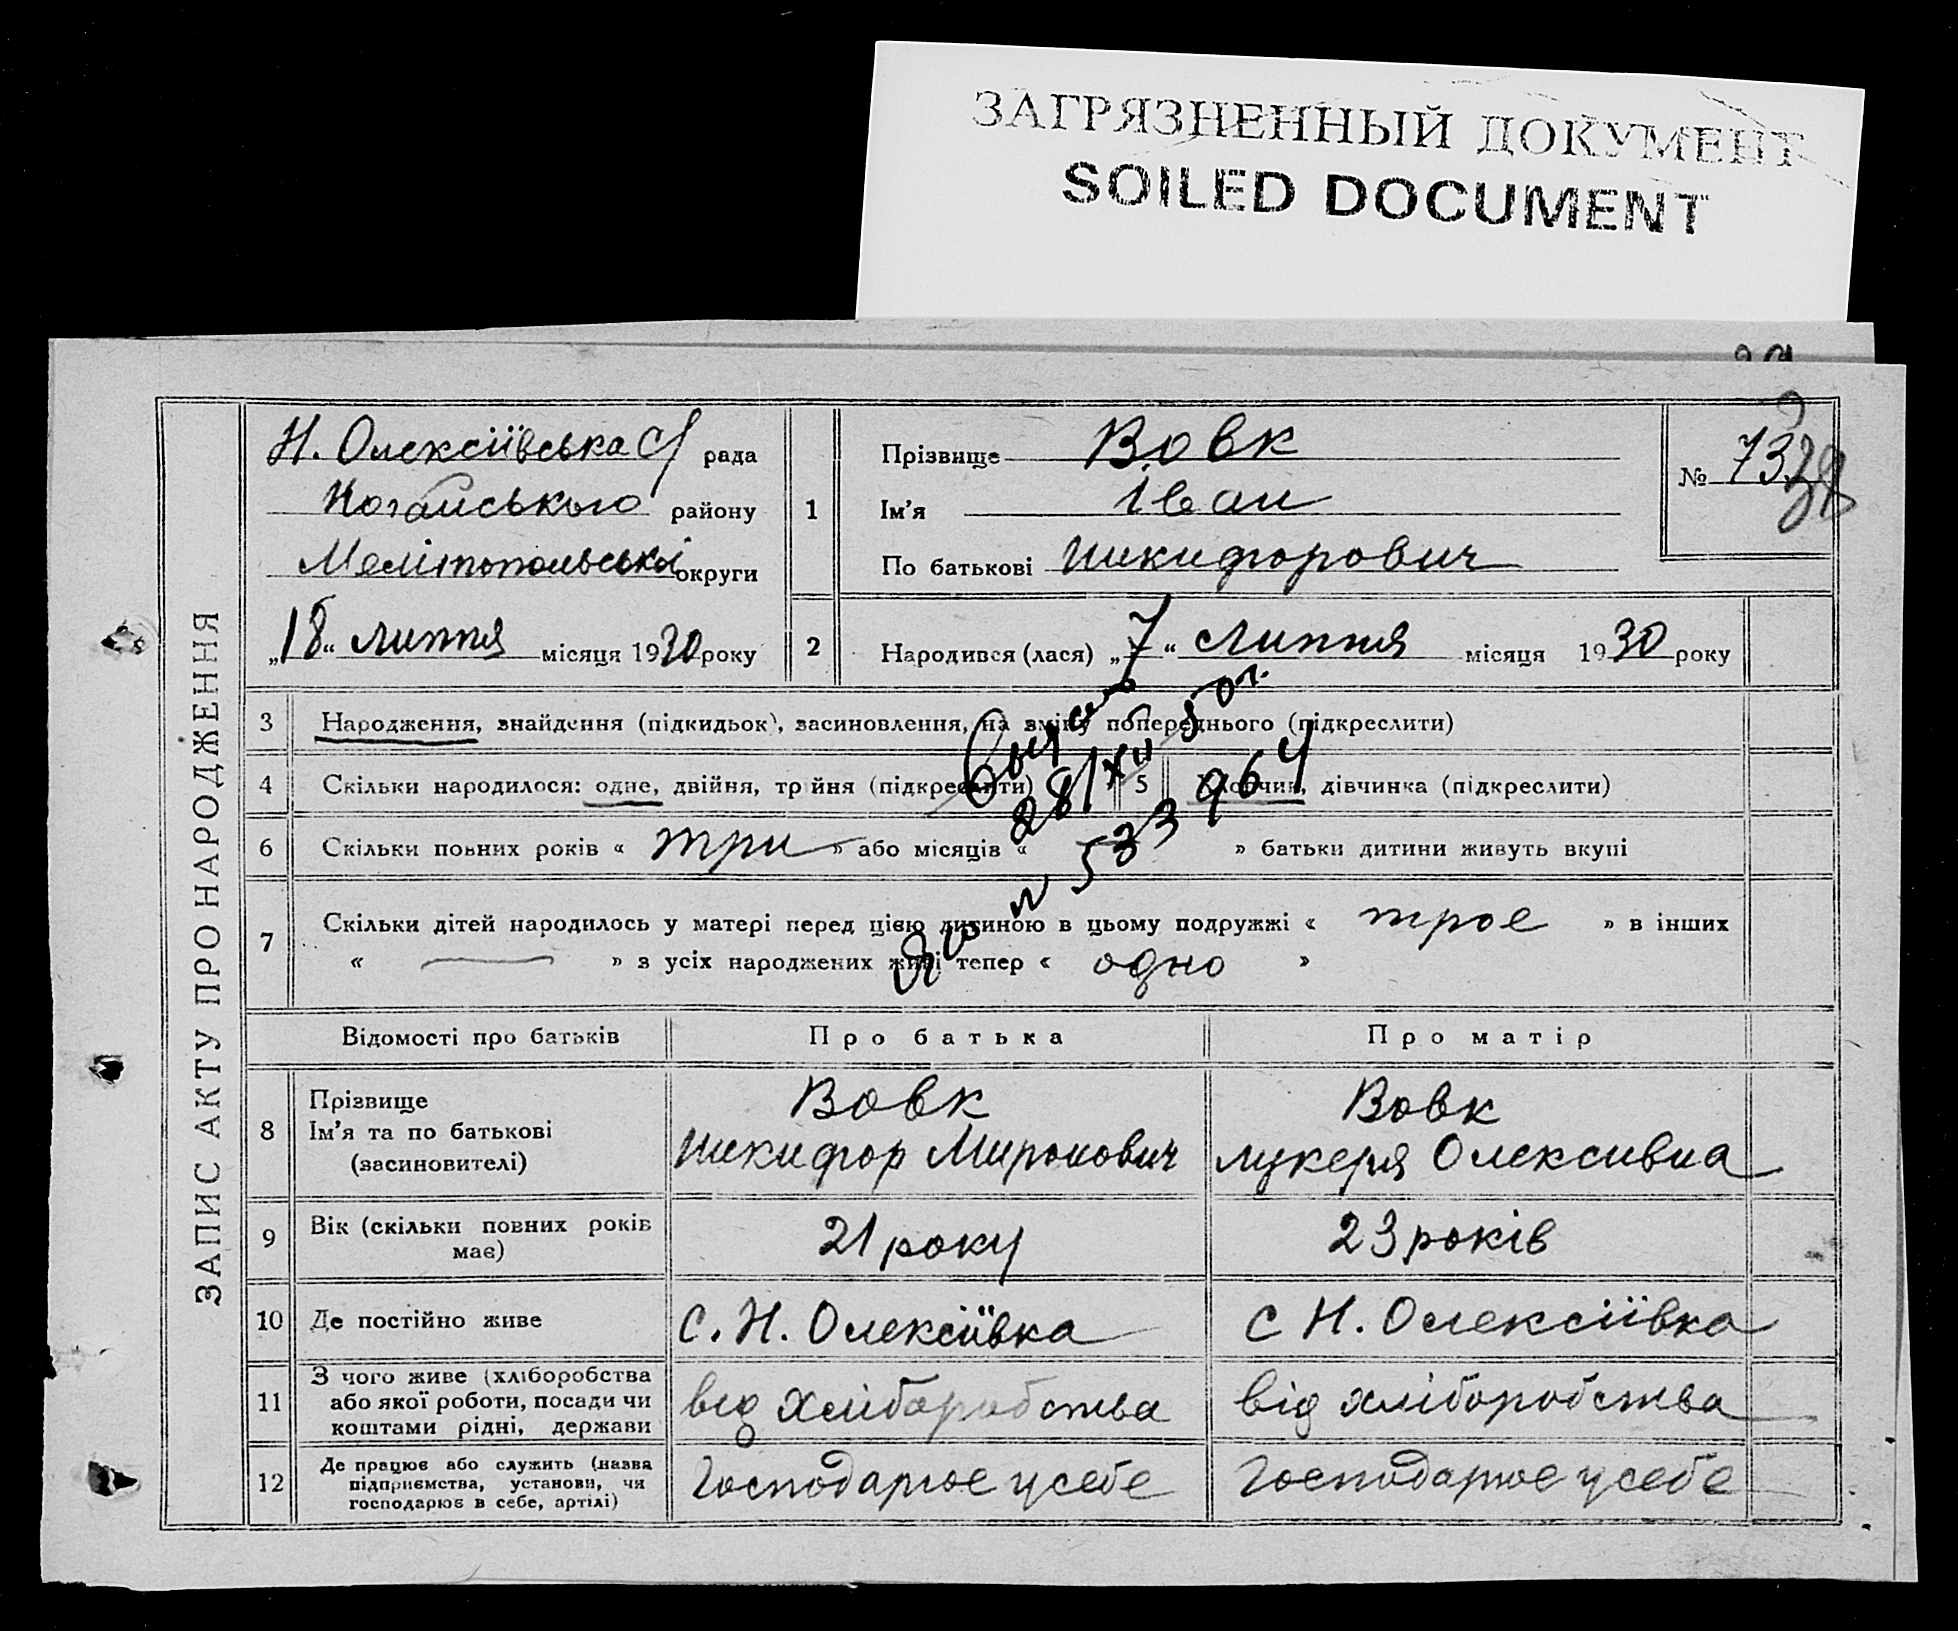 ЗАГРЯЗНЕННЫЙ ДОКУМЕНТ
SOILED DOCUMENT
ЗАПИС АКТУ ПРО НАРОДЖЕННЯ
Н. Олексіївська с/ рада
Ногайського району
Мелітопольської округи
„18“ липня місяця 1930 року
1
Прізвище Вовк
Ім'я Іван
По батькові Никифорович
№ 73
38
2 Народився (лася) „7“ липня місяця 1930 року
3 Народження, знайдення (підкидьок), засиновлення, на зміну попереднього (підкреслити)
4 Скільки народилося: одне, двійня, тройня (підкреслити) 5 Хлопчик, дівчинка (підкреслити)
6 Скільки повних років « три » або місяців « » батьки дитини живуть вкупі
7 Скільки дітей народилось у матері перед цією дитиною в цьому подружжі « троє » в інших
« — » з усіх народжених живі тепер « одно »
28/XII 50 г.
№ 533964
Відомості про батьків Про батька Про матір
8 Прізвище
Ім'я та по батькові
(засиновителі)
Вовк
Никифор Миронович
Вовк
Лукеря Олексивна
9 Вік (скільки повних років
має)
21 року
23 років
10 Де постійно живе с. Н. Олексіївка с Н. Олексіївка
11 З чого живе (хліборобства
або якої роботи, посади чи
коштами рідні, держави
від хліборобства
від хліборобства
12 Де працює або служить (назва
підприємства, установи, чи
господарює в себе, артілі)
Господарює у себе
Господарює у себе